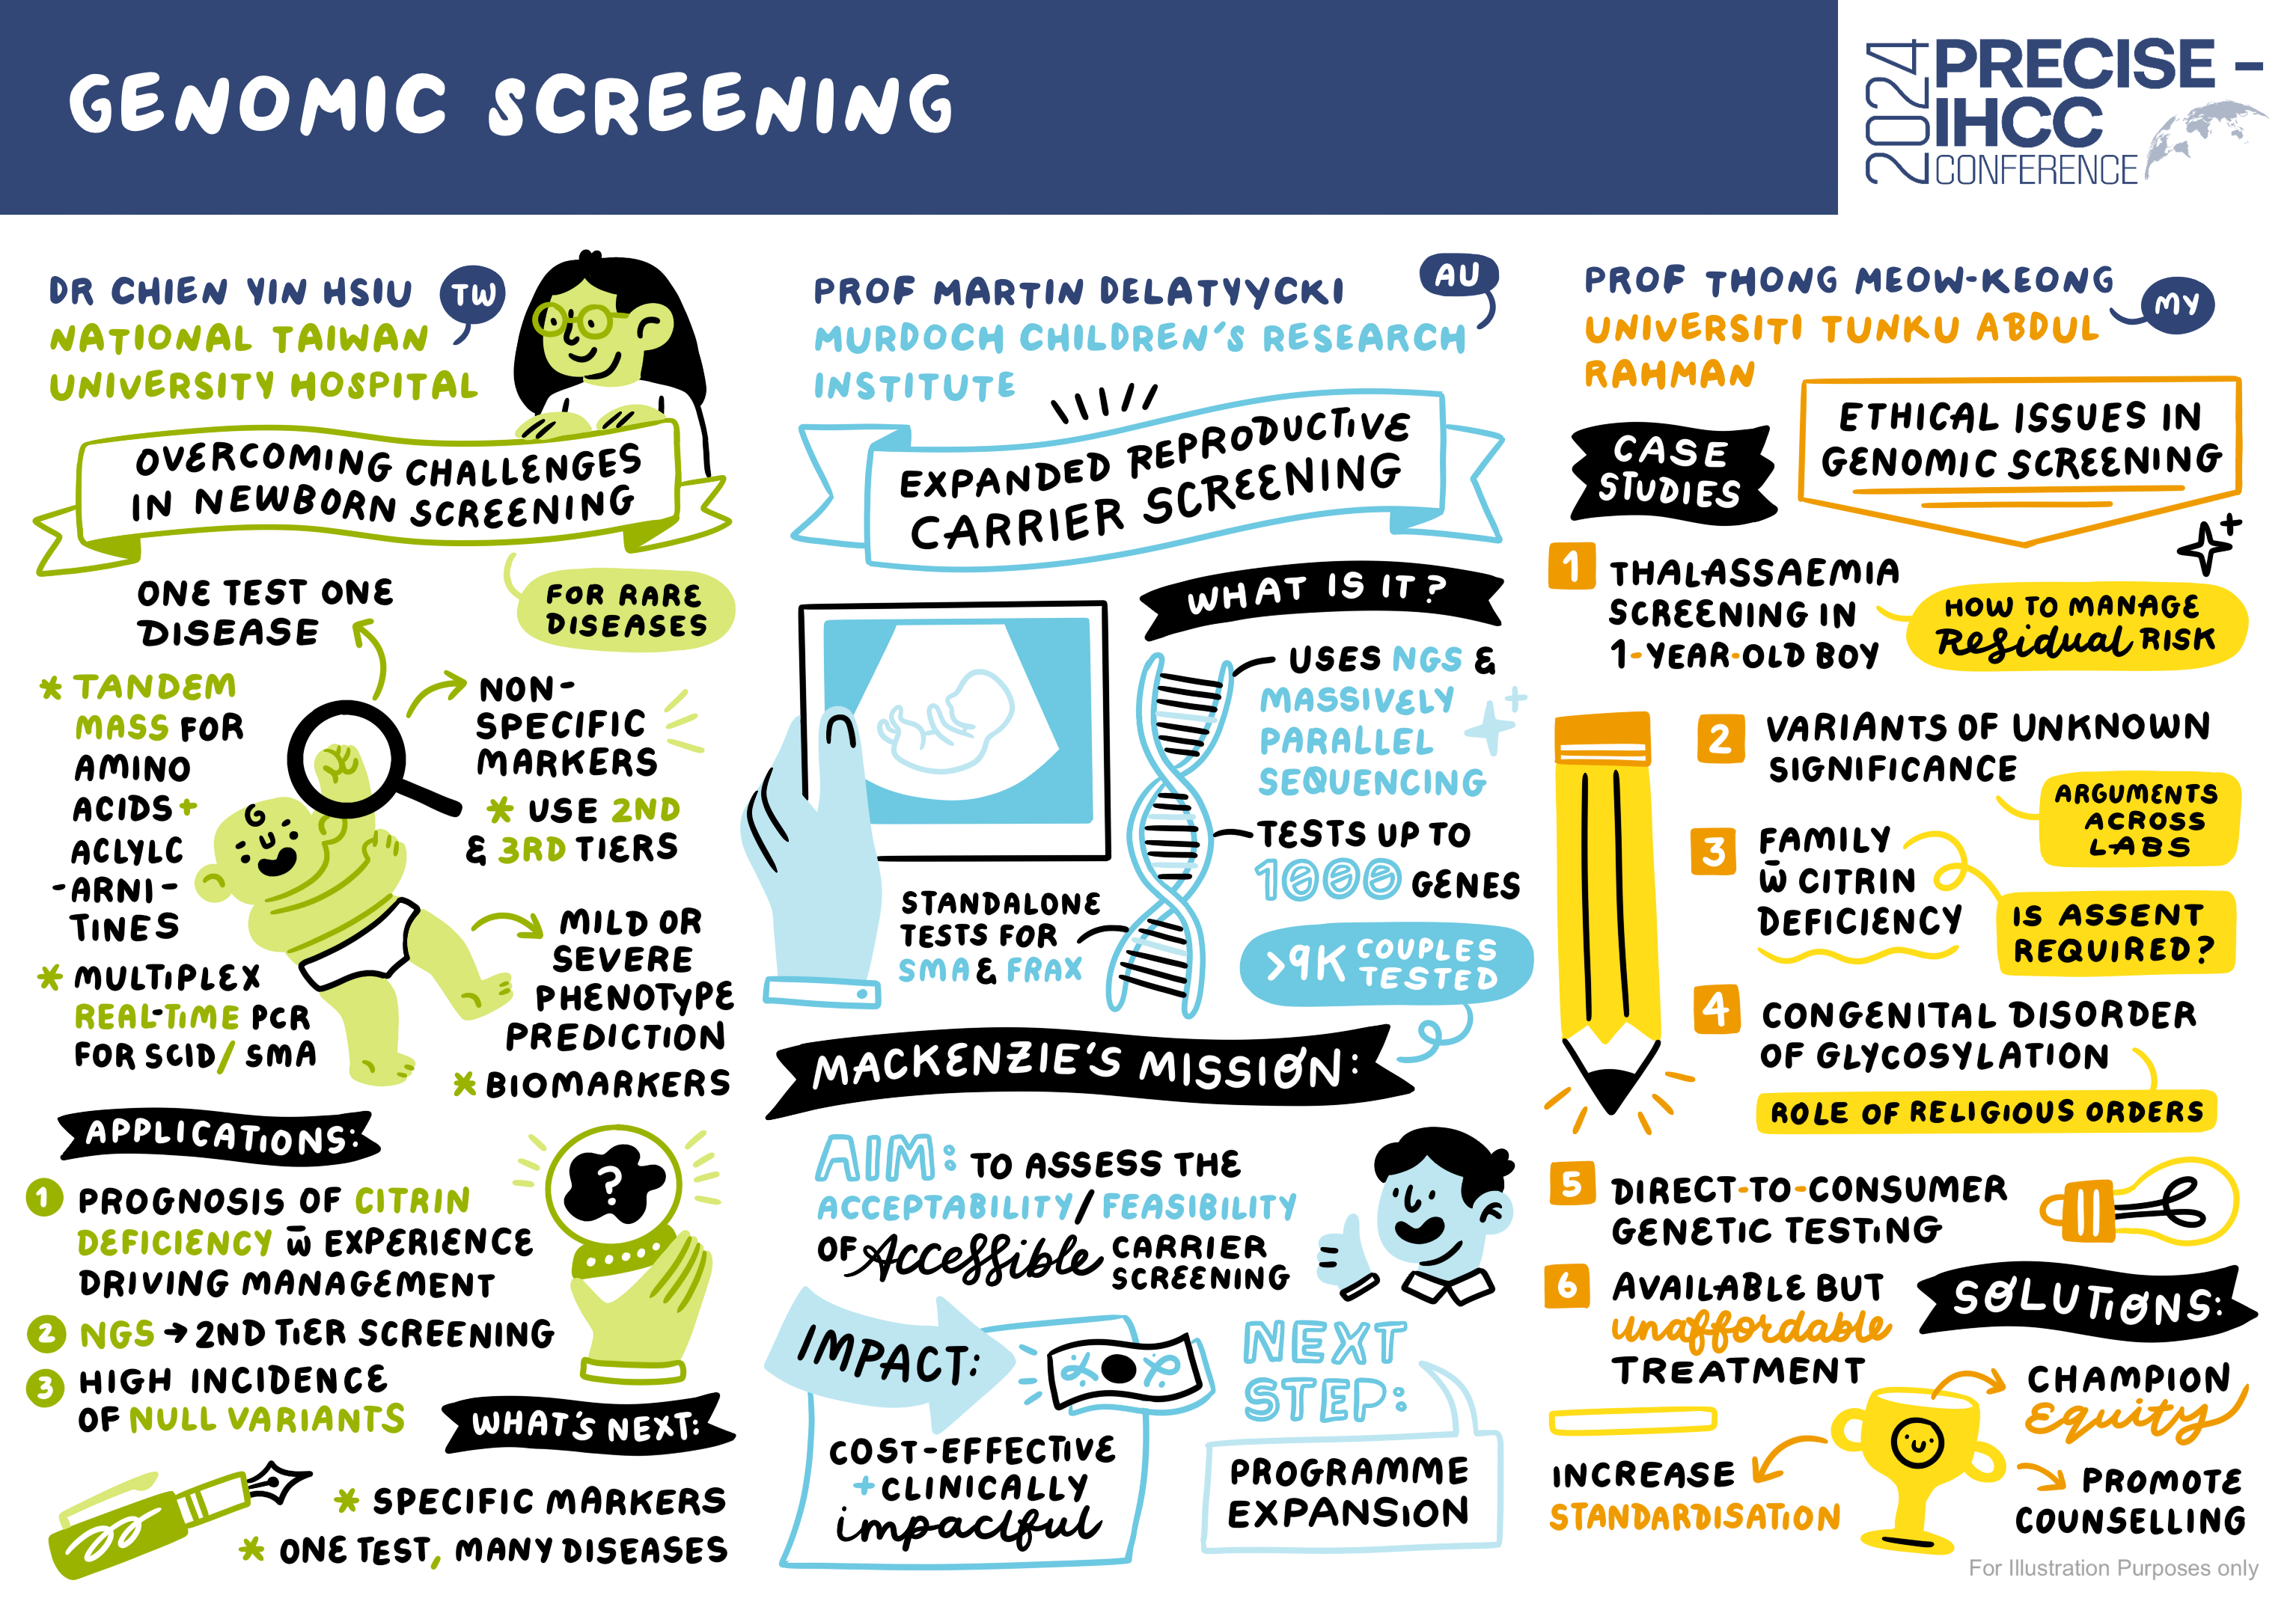 GENOMIC SCREENING
2024 PRECISE -
IHCC
CONFERENCE
DR CHIEN YIN HSIU
TW
NATIONAL TAIWAN
UNIVERSITY HOSPITAL
OVERCOMING CHALLENGES
IN NEWBORN SCREENING
FOR RARE
DISEASES
ONE TEST ONE
DISEASE
* TANDEM
MASS FOR
AMINO
ACIDS +
ACLYLC
-ARNI-
TINES
* MULTIPLEX
REAL-TIME PCR
FOR SCID/ SMA
NON-
SPECIFIC
MARKERS
* USE 2ND
& 3RD TIERS
MILD OR
SEVERE
PHENOTYPE
PREDICTION
* BIOMARKERS
APPLICATIONS:
1 PROGNOSIS OF CITRIN
DEFICIENCY w̄ EXPERIENCE
DRIVING MANAGEMENT
2 NGS → 2ND TIER SCREENING
3 HIGH INCIDENCE
OF NULL VARIANTS
?
WHAT'S NEXT:
* SPECIFIC MARKERS
* ONE TEST, MANY DISEASES
PROF MARTIN DELATYYCKI
AU
MURDOCH CHILDREN'S RESEARCH
INSTITUTE
EXPANDED REPRODUCTIVE
CARRIER SCREENING
WHAT IS IT?
USES NGS &
MASSIVELY
PARALLEL
SEQUENCING
TESTS UP TO
1000 GENES
STANDALONE
TESTS FOR
SMA & FRAX
>9K COUPLES
TESTED
MACKENZIE'S MISSION:
AIM: TO ASSESS THE
ACCEPTABILITY/ FEASIBILITY
OF Accessible CARRIER
SCREENING
IMPACT:
COST-EFFECTIVE
+ CLINICALLY
impactful
NEXT
STEP:
PROGRAMME
EXPANSION
PROF THONG MEOW-KEONG
MY
UNIVERSITI TUNKU ABDUL
RAHMAN
ETHICAL ISSUES IN
GENOMIC SCREENING
CASE
STUDIES
1 THALASSAEMIA
SCREENING IN
1-YEAR-OLD BOY
HOW TO MANAGE
Residual RISK
2 VARIANTS OF UNKNOWN
SIGNIFICANCE
ARGUMENTS
ACROSS
LABS
3 FAMILY
w̄ CITRIN
DEFICIENCY
IS ASSENT
REQUIRED?
4 CONGENITAL DISORDER
OF GLYCOSYLATION
ROLE OF RELIGIOUS ORDERS
5 DIRECT-TO-CONSUMER
GENETIC TESTING
6 AVAILABLE BUT
unaffordable
TREATMENT
SOLUTIONS:
CHAMPION
Equity
INCREASE
STANDARDISATION
PROMOTE
COUNSELLING
For Illustration Purposes only